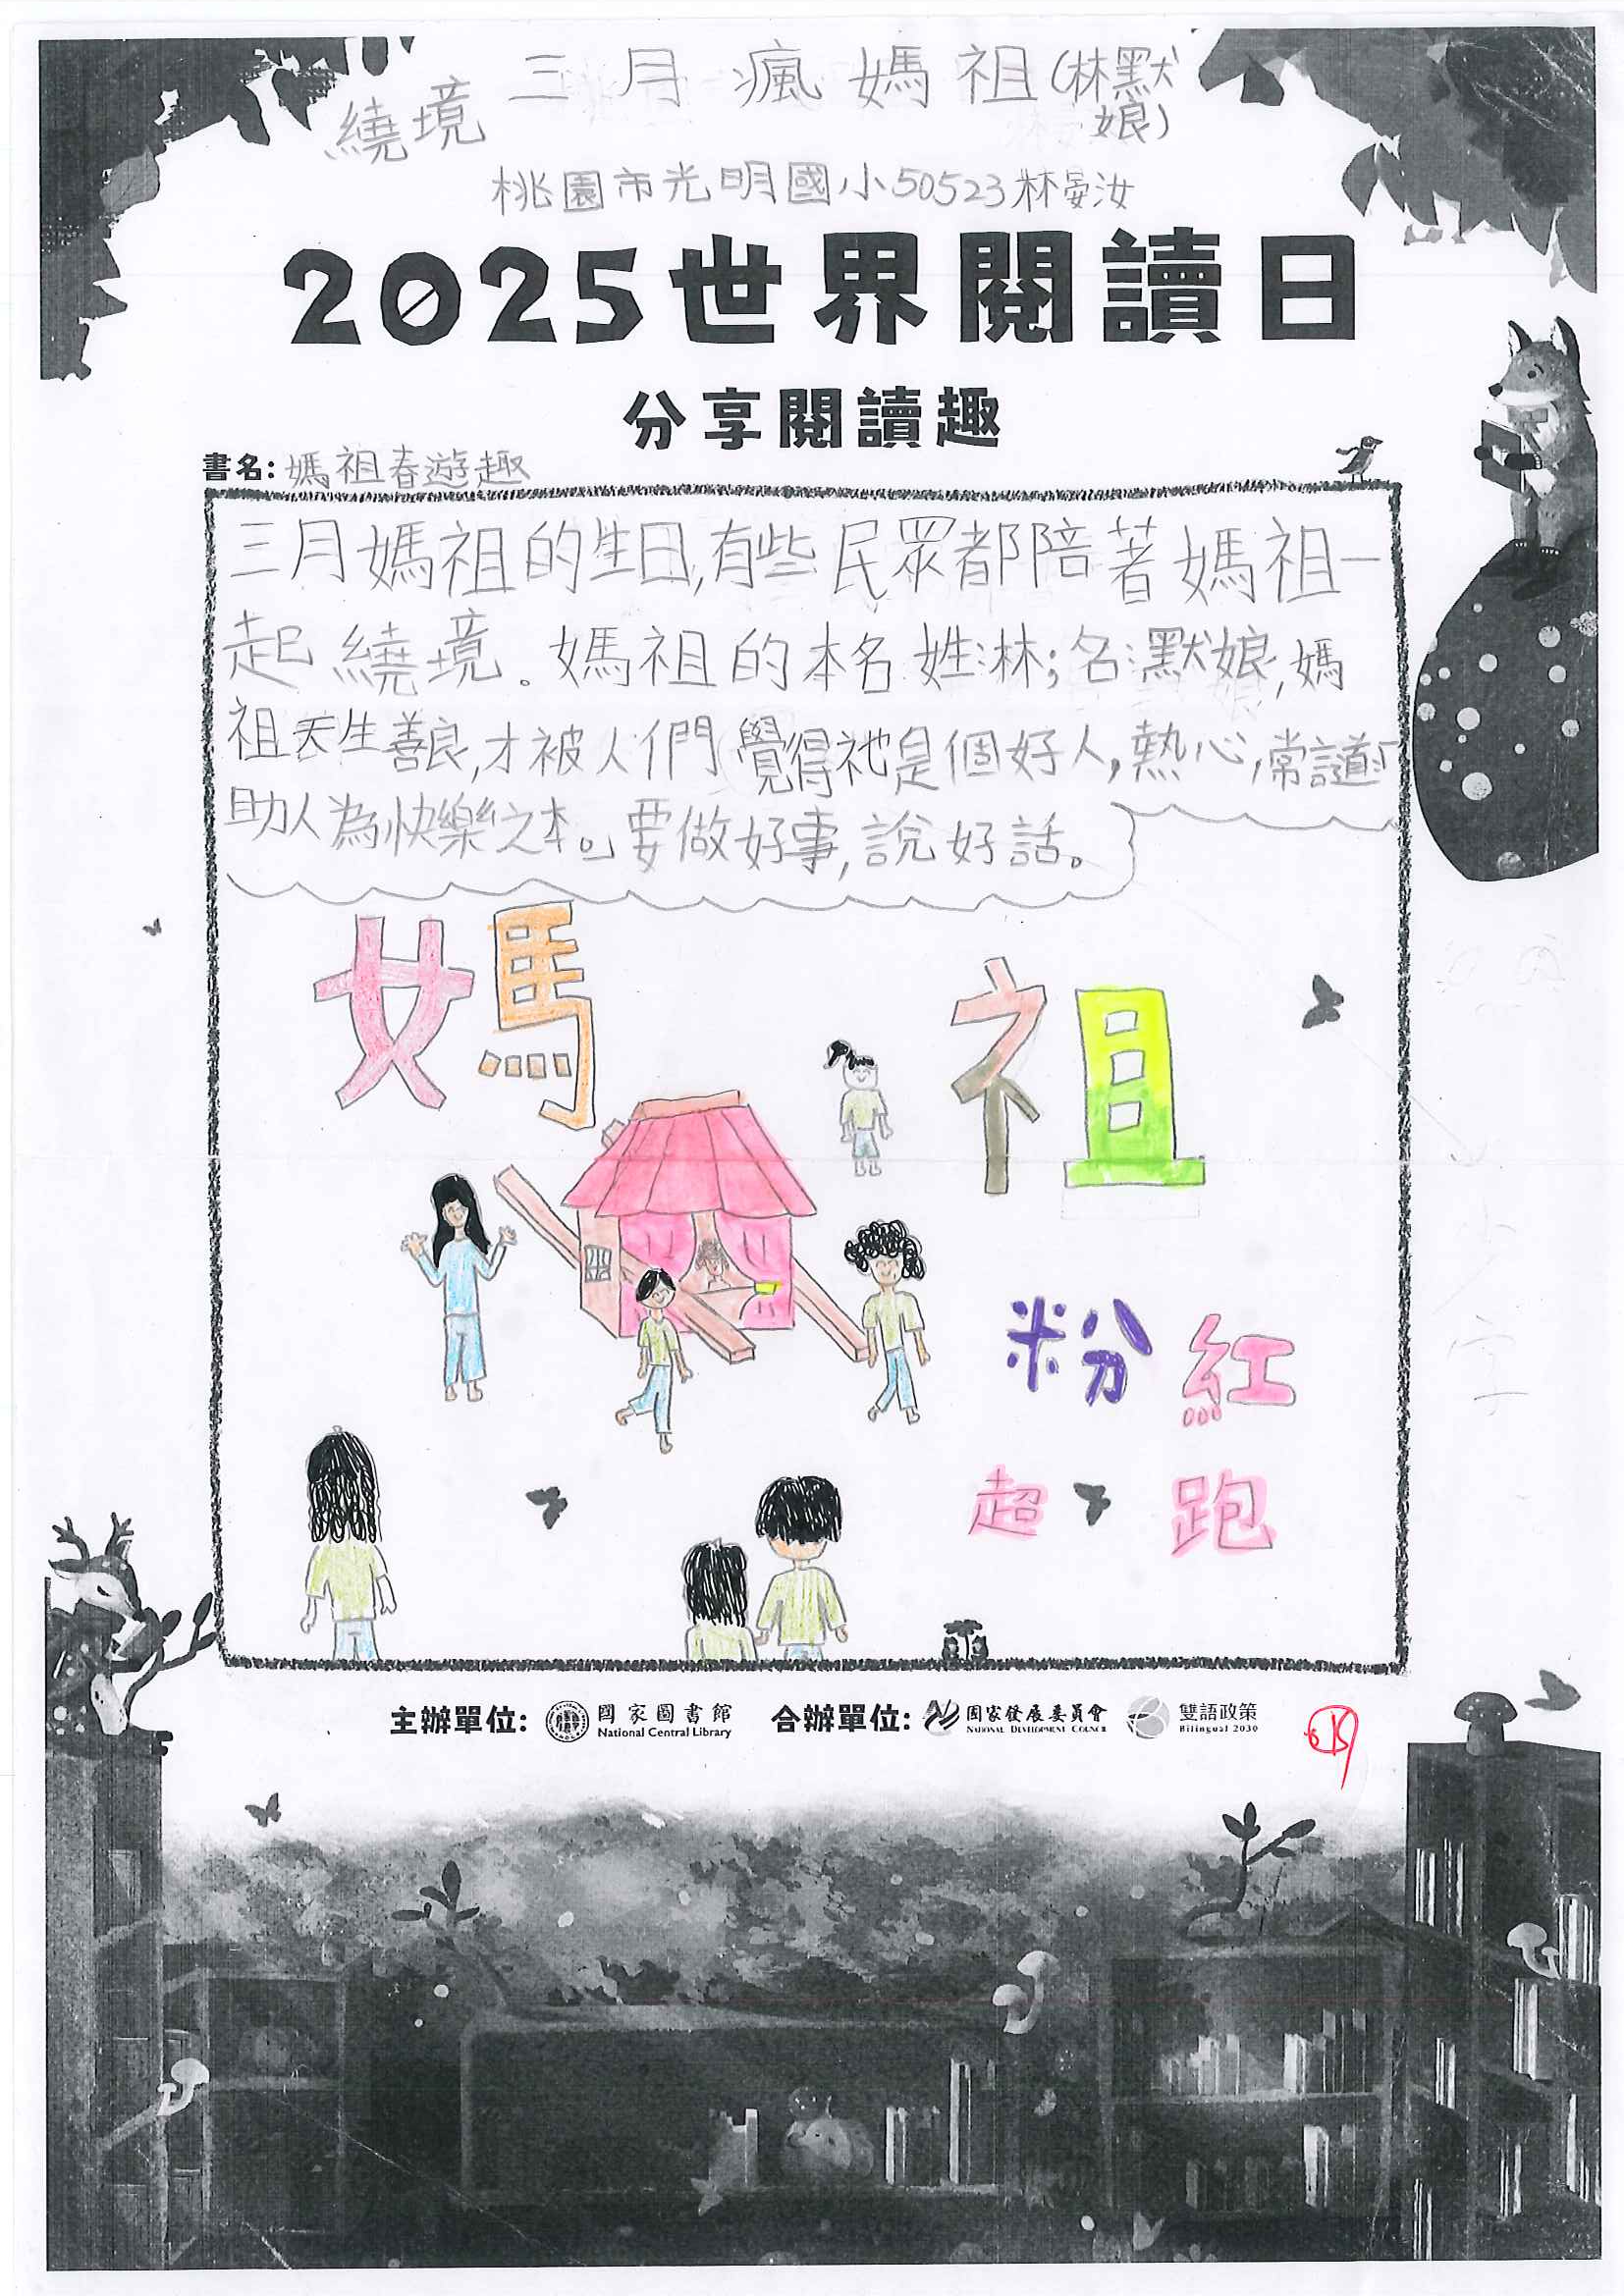 三月瘋媽祖(林默娘)
繞境
桃園市光明國小50523林晏汝
2025世界閱讀日
分享閱讀趣
書名:媽祖春遊趣
三月媽祖的生日,有些民眾都陪著媽祖一
起繞境。媽祖的本名姓:林;名:默娘,媽
祖天生善良,才被人們覺得祂是個好人,熱心,常說道:「
助人為快樂之本。」要做好事,說好話。
媽祖
粉紅
超跑
主辦單位: 國家圖書館 National Central Library 合辦單位: 國家發展委員會 NATIONAL DEVELOPMENT COUNCIL 雙語政策 Bilingual 2030